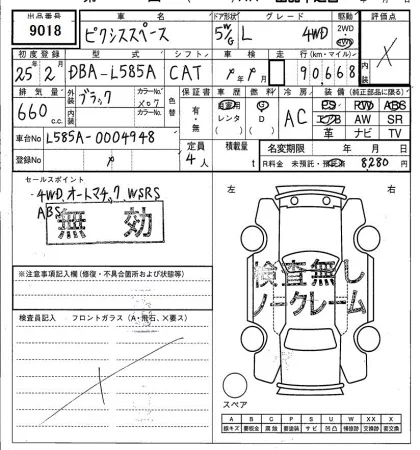 出品番号 車名 ドア形状 グレード 駆動 評価点
9018 ピクシススペース 5W/G L 4WD 2WD 4WD X
初度登録 型式 シフト 車検 走行(km・マイル) 内装
25年2月 DBA-L585A CAT 年 月 90,668
排気量 外装 ブラック カラーNo. X07 色替 保証書 車歴 燃料 冷房 装備(純正部品に限る)
660 c.c. 内装 カラーNo. 有・無 自家用 レンタ G D AC PS PW ABS
エアB AW SR
革 ナビ TV
車台No L585A-0004948 定員 4人 積載量 t 名変期限 年 月 日
登録No R料金 未預託・預託済 8280円
セールスポイント
4WD、オートマチック、W SRS
ABS
無効
左 右
※注意事項記入欄(修復・不具合箇所および状態等)
検査無し
ノークレーム
検査員記入 フロントガラス(A・飛石、X要ス)
スペア
A B C P S U W X XX
線キズ 要板金 腐蝕 要塗装 サビ 凹凸 補修跡 交換跡 要交換